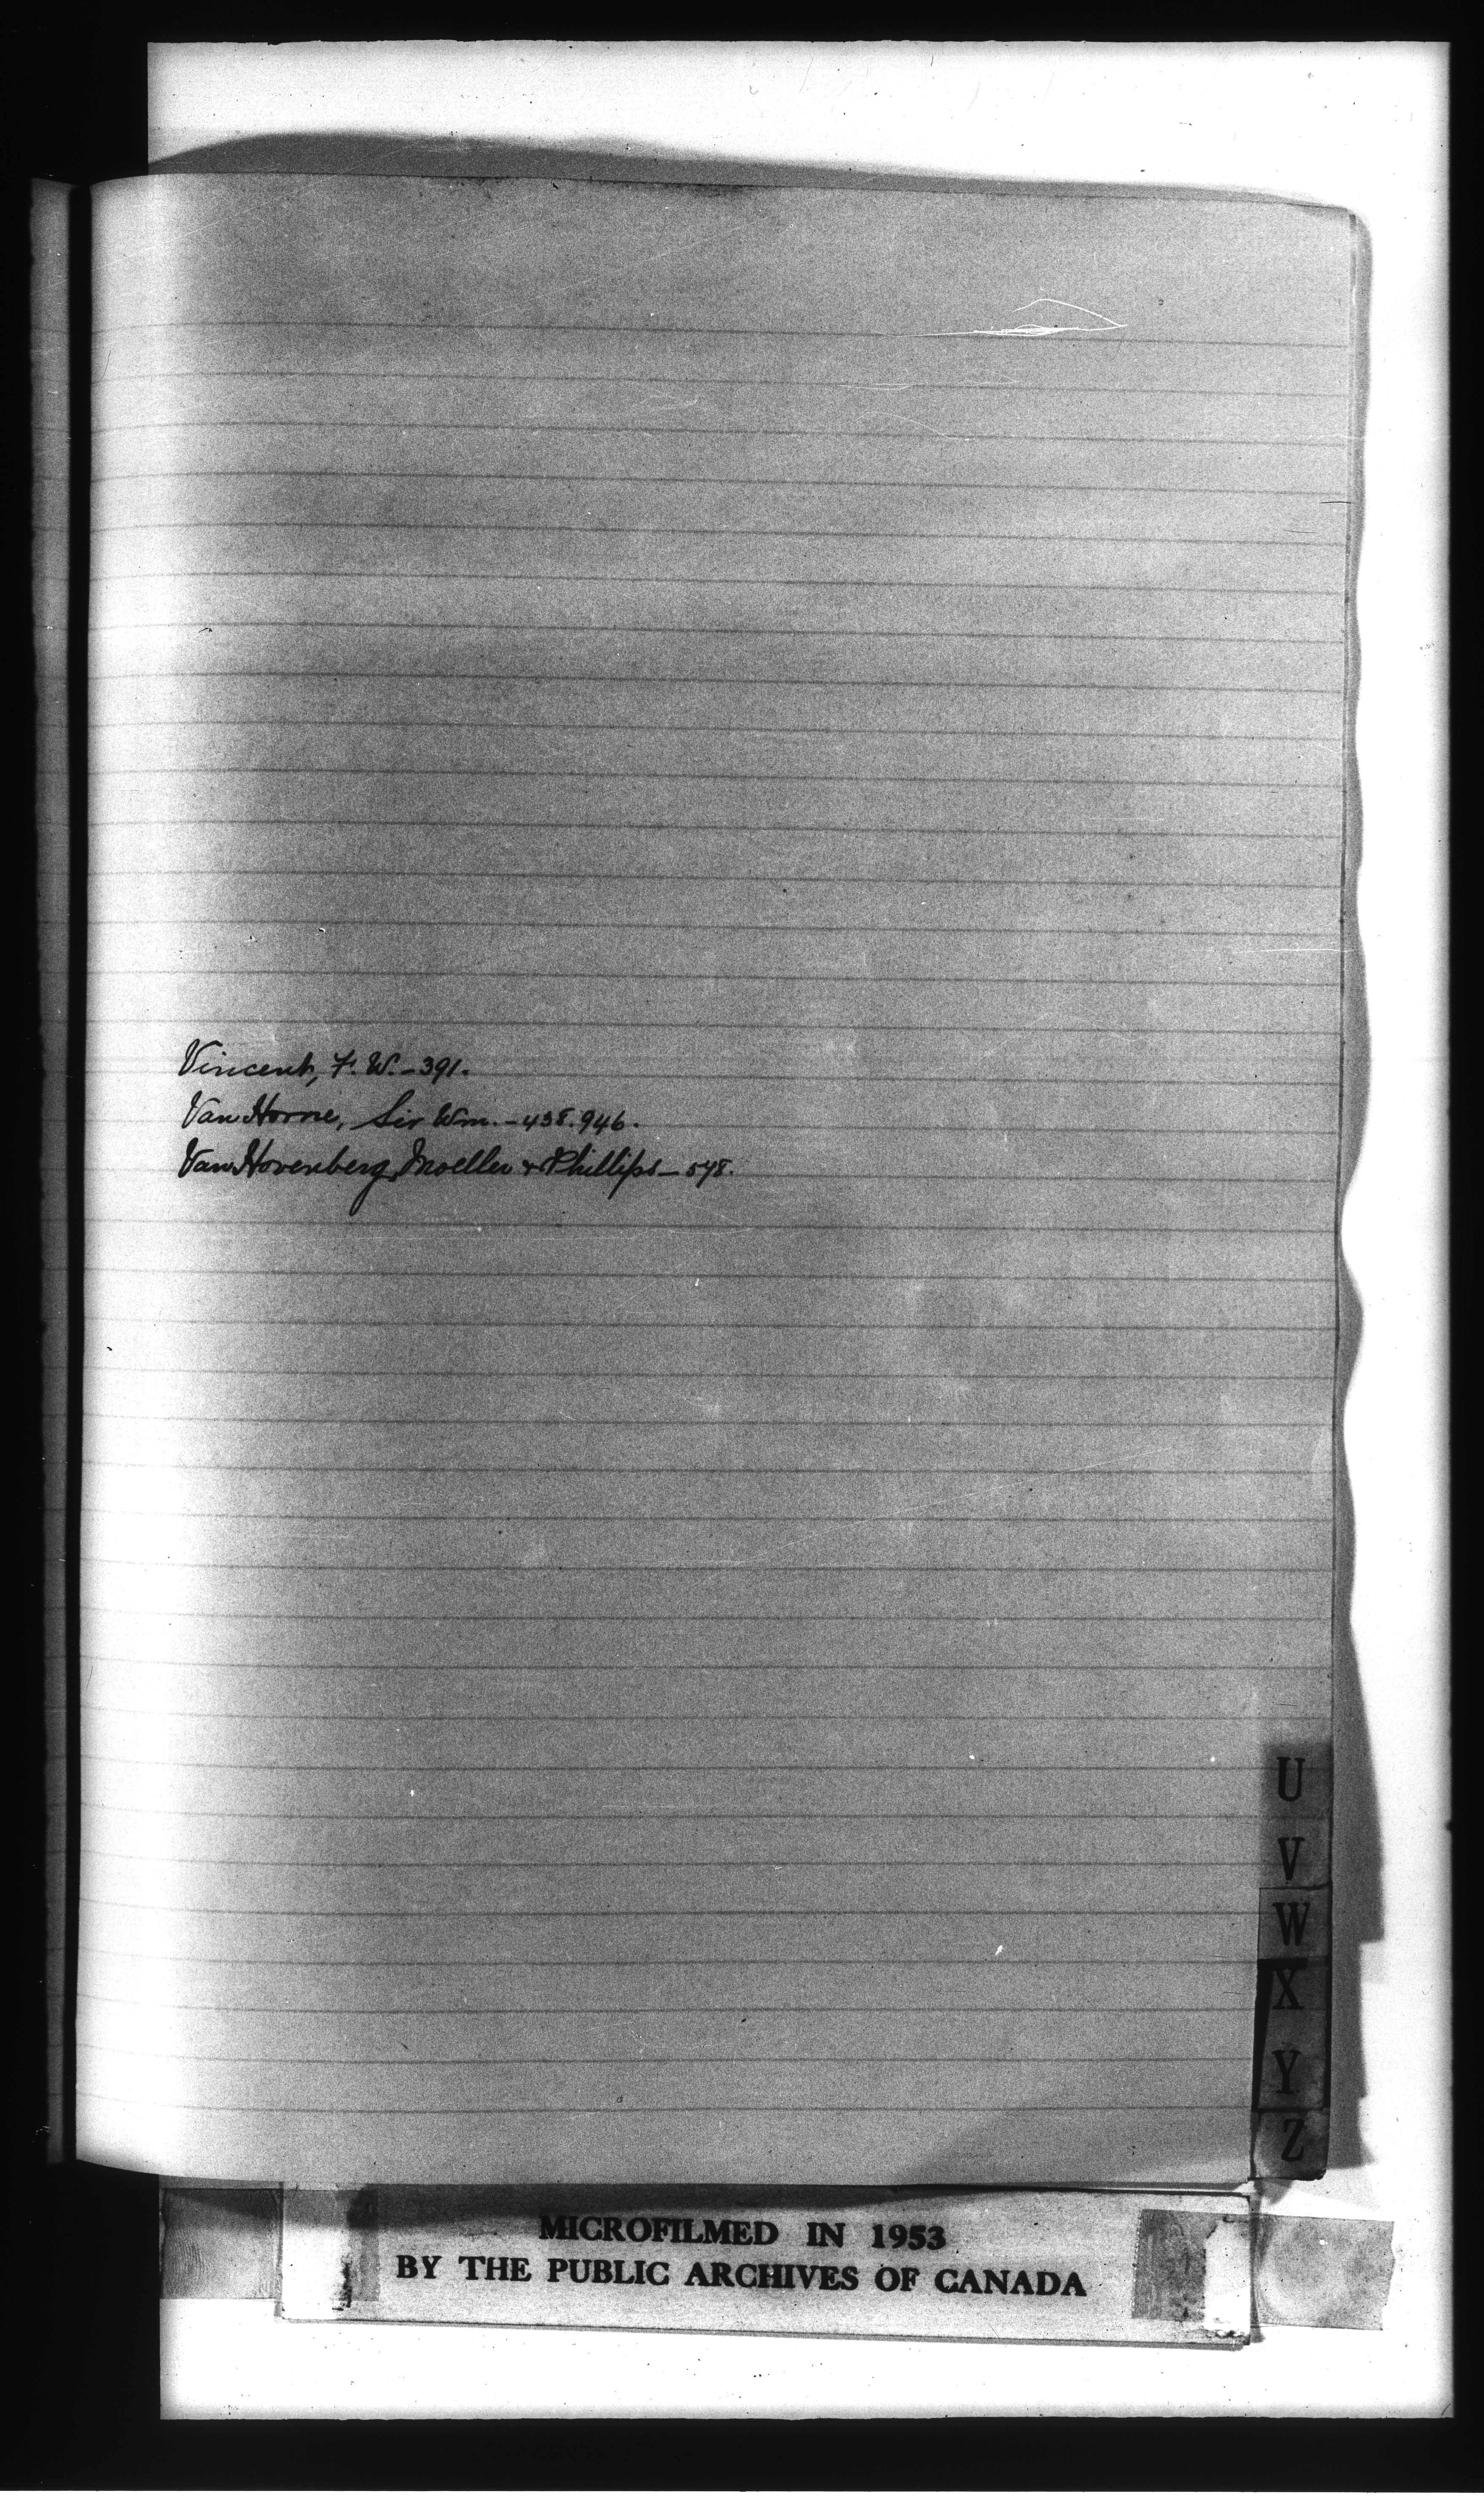 Vincent, F. W. - 391.
Van Horne, Sir Wm. - 438. 946.
Van Hovenberg, Moeller & Phillips - 548.
U
V
W
X
Y
Z
MICROFILMED IN 1953
BY THE PUBLIC ARCHIVES OF CANADA